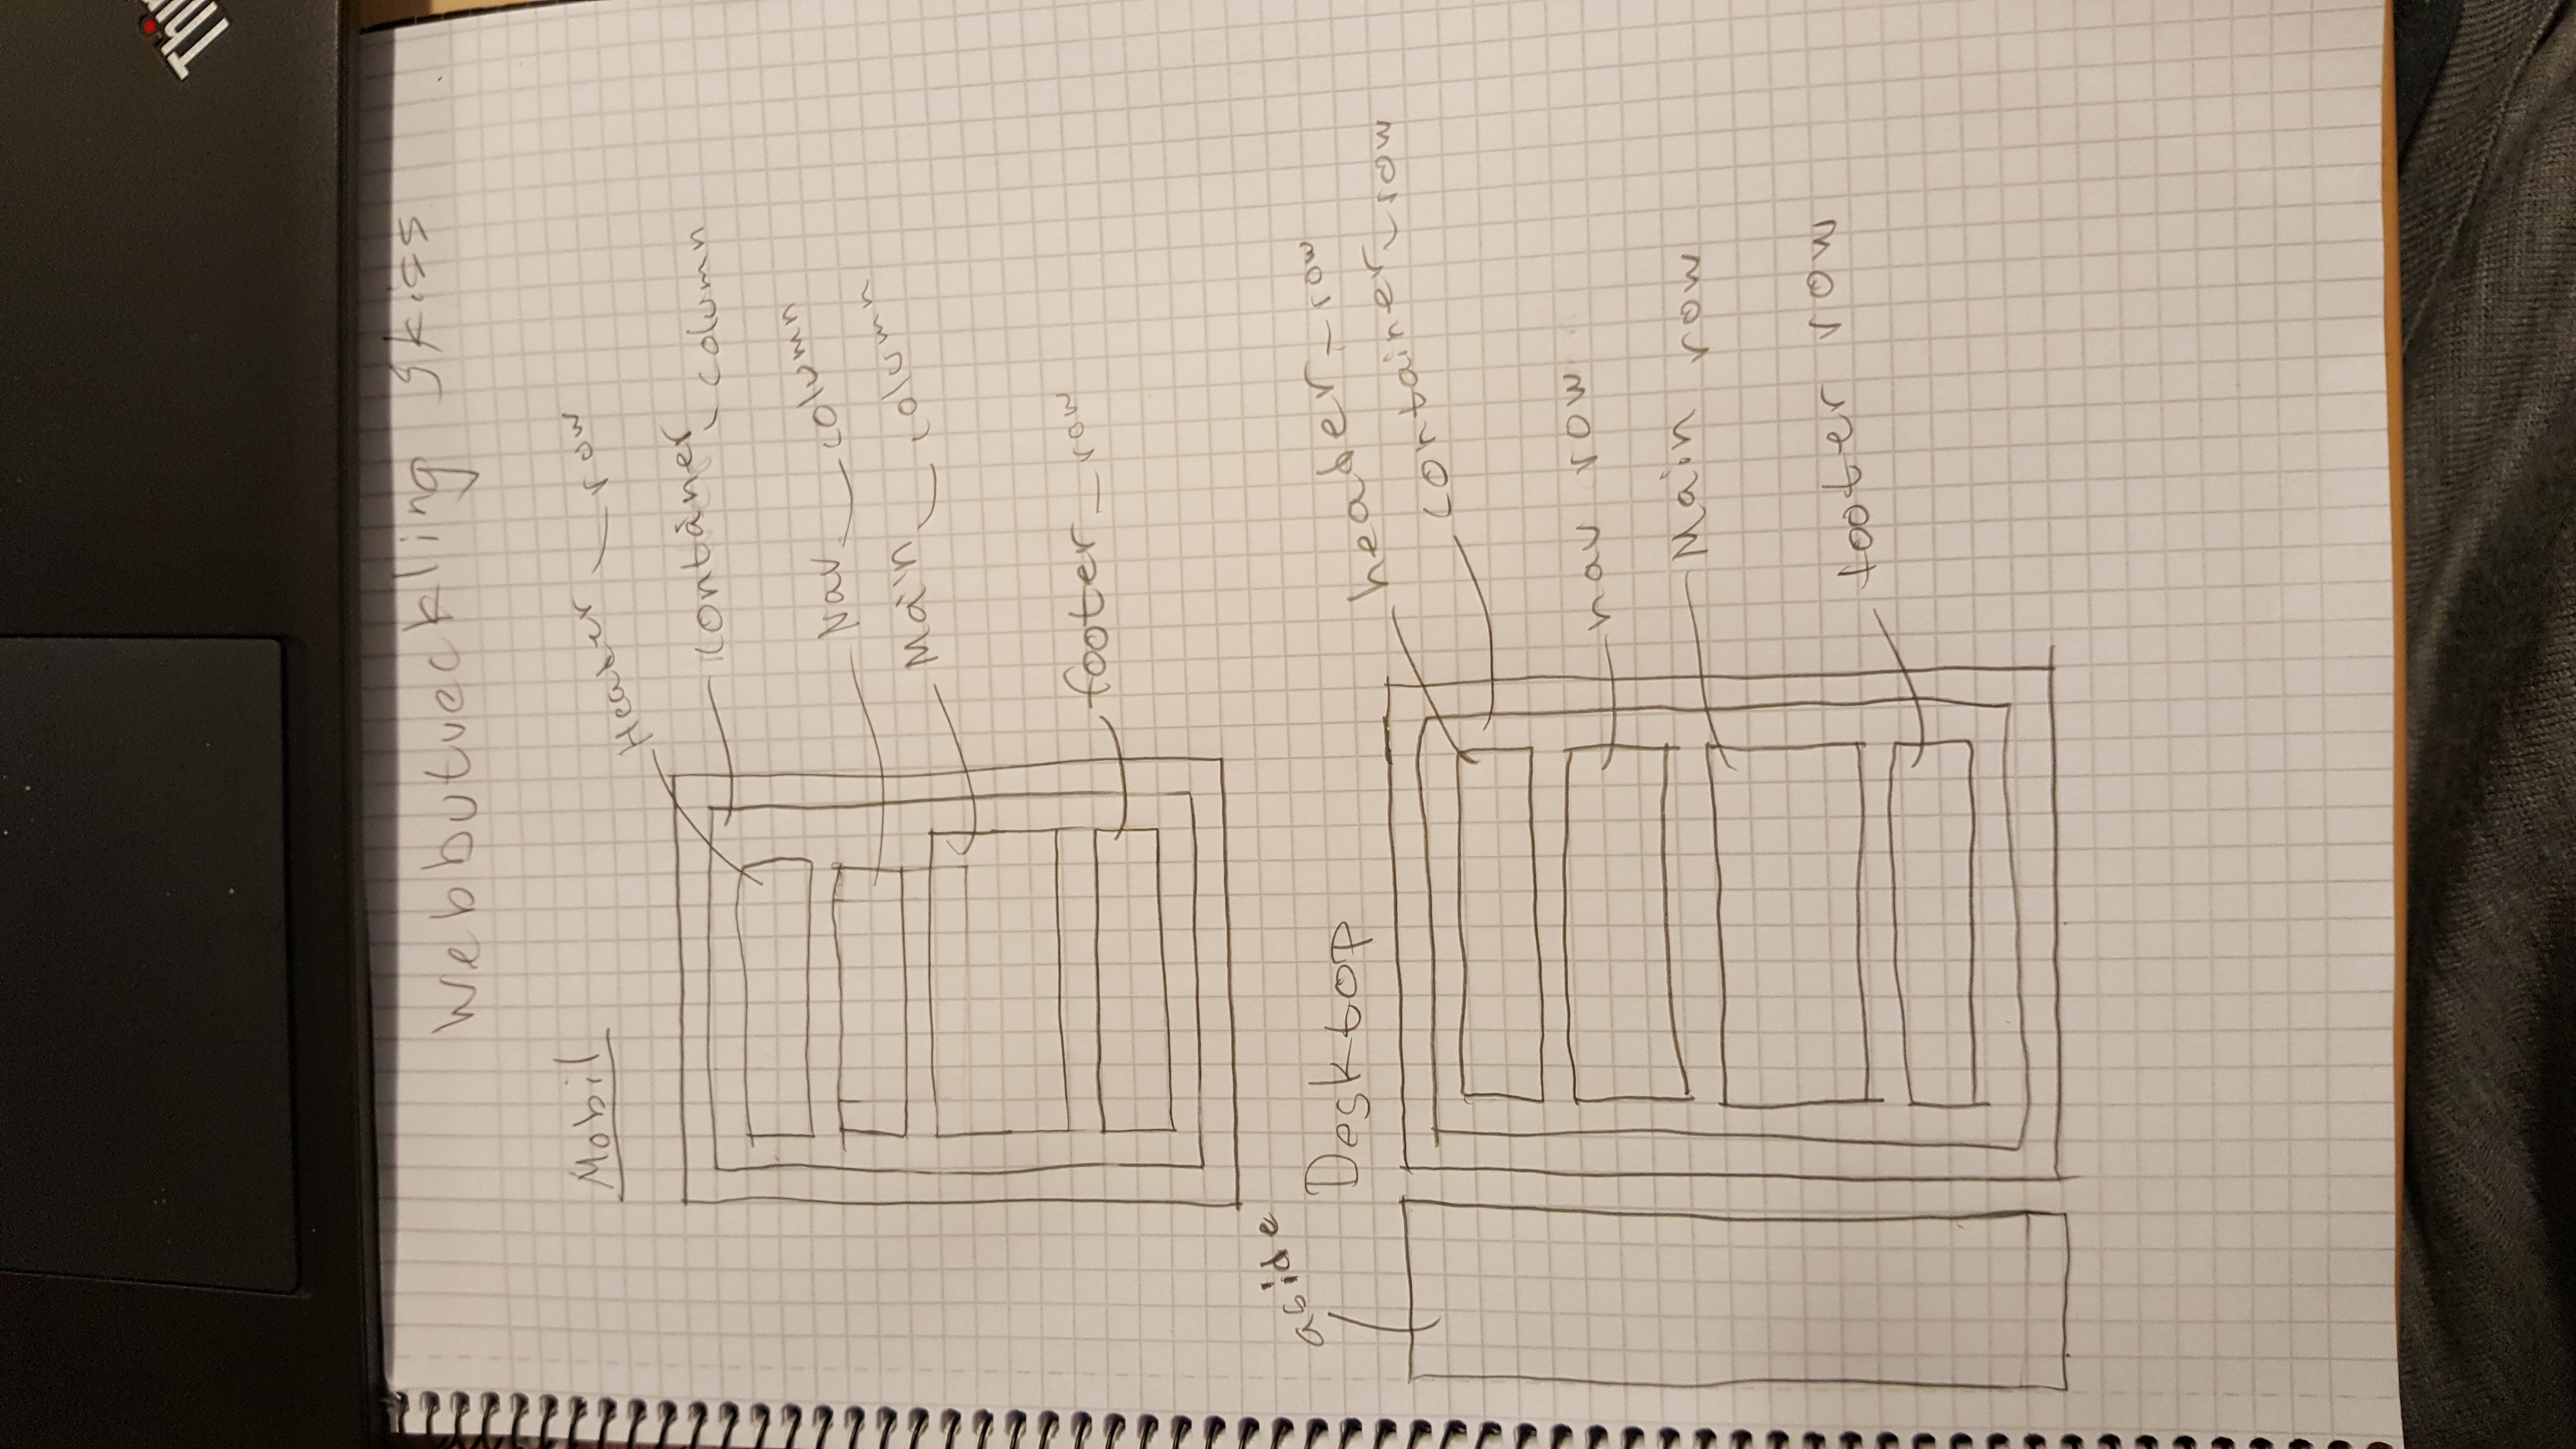 Thi
Webbutveckling skiss
Mobil
Header - row
container - column
Nav - column
Main - column
footer - row
aside
Desktop
header - row
container - row
nav row
Main row
footer row